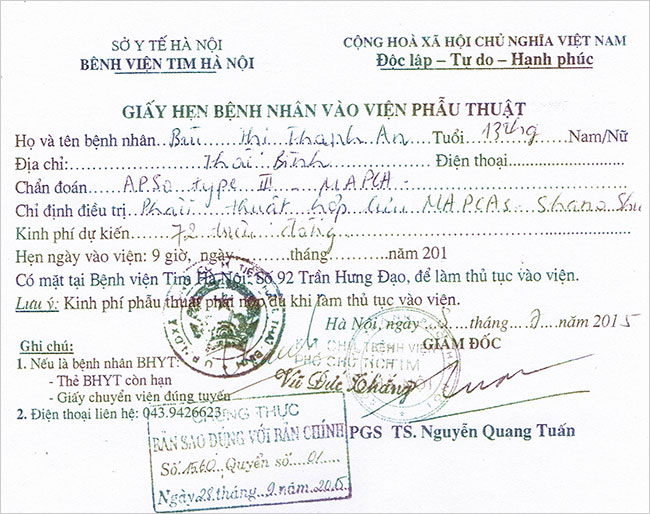 SỞ Y TẾ HÀ NỘI
BỆNH VIỆN TIM HÀ NỘI
CỘNG HOÀ XÃ HỘI CHỦ NGHĨA VIỆT NAM
Độc lập – Tự do – Hạnh phúc
GIẤY HẸN BỆNH NHÂN VÀO VIỆN PHẪU THUẬT
Họ và tên bệnh nhân Bùi Thị Thanh An Tuổi 13thg Nam/Nữ
Địa chỉ: Thái Bình Điện thoại
Chẩn đoán APSO type III - MAPCA -
Chỉ định điều trị Phẫu thuật hợp lưu MAPCAs - Shunt
Kinh phí dự kiến 72 triệu đồng
Hẹn ngày vào viện: 9 giờ, ngày tháng năm 201
Có mặt tại Bệnh viện Tim Hà Nội: Số 92 Trần Hưng Đạo, để làm thủ tục vào viện.
Lưu ý: Kinh phí phẫu thuật phải nộp đủ khi làm thủ tục vào viện.
Hà Nội, ngày 8 tháng 7 năm 2015
GIÁM ĐỐC
PHÓ CHỦ TỊCH
Vũ Đức Khẳng
PGS TS. Nguyễn Quang Tuấn
Ghi chú:
1. Nếu là bệnh nhân BHYT:
- Thẻ BHYT còn hạn
- Giấy chuyển viện đúng tuyến
2. Điện thoại liên hệ: 043.9426623
CHỨNG THỰC
BẢN SAO ĐÚNG VỚI BẢN CHÍNH
Số 1560 Quyển số 01
Ngày 28 tháng 9 năm 2015